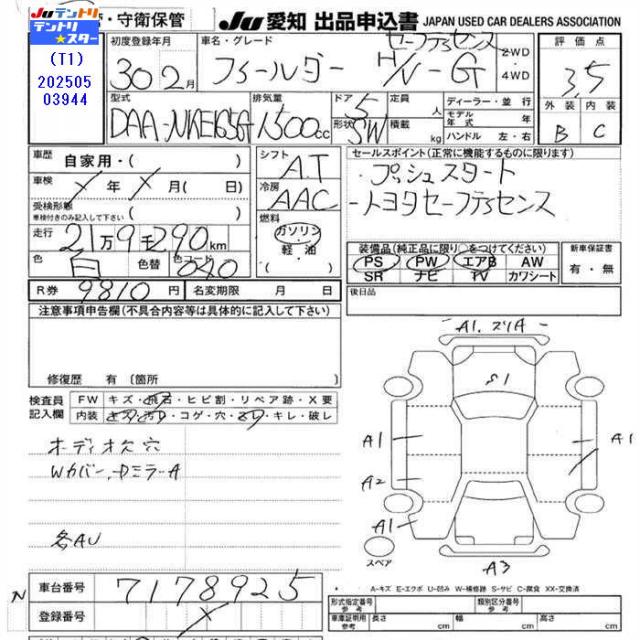 Juテントリ
テントリ★スター
(T1)
202505
03944
・守衛保管
Ju 愛知 出品申込書 JAPAN USED CAR DEALERS ASSOCIATION
初度登録年月
30年2月
車名・グレード
フィールダー
セーフティセンス
H/V-G
2WD
・
4WD
評価点
3.5
外装 内装
B C
型式
DAA-NKE165G
排気量
1500cc
ドア
5
形状
SW
定員
人
積載
kg
ディーラー・並行
モデル年式
年
ハンドル 左・右
車歴 自家用・( )
車検 X年X月(日)
受検形態
車検付きのみ記入して下さい
( )
走行
21万9千290km
色 白 色替 色コード 040
シフト
A.T
冷房
AAC
燃料
ガソリン
・
軽・油
セールスポイント(正常に機能するものに限ります)
・プッシュスタート
-トヨタセーフティセンス
装備品(純正品に限り○をつけてください)
PS PW エアB AW
SR ナビ TV カワシート
新車保証書
有・無
R券 9810円 名変期限 月 日
後日品
注意事項申告欄(不具合内容等は具体的に記入して下さい)
修復歴 有 〔箇所
検査員記入欄
FW キズ・飛石・ヒビ割・リペア跡・X要
内装 キズ・汚れ・コゲ・穴・ハリ・キレ・破レ
オーディオ欠穴
Wカバー、DミラーA
各AU
A1.スリA
S1
A1
A1
A2
A1
A3
スペア
A-キズ E-エクボ U-凹み W-補修跡 S-サビ C-腐食 XX-交換済
車台番号 7178925
登録番号
形式指定番号 類別区分番号
車庫証明用参考 長さ cm 幅 cm 高さ cm